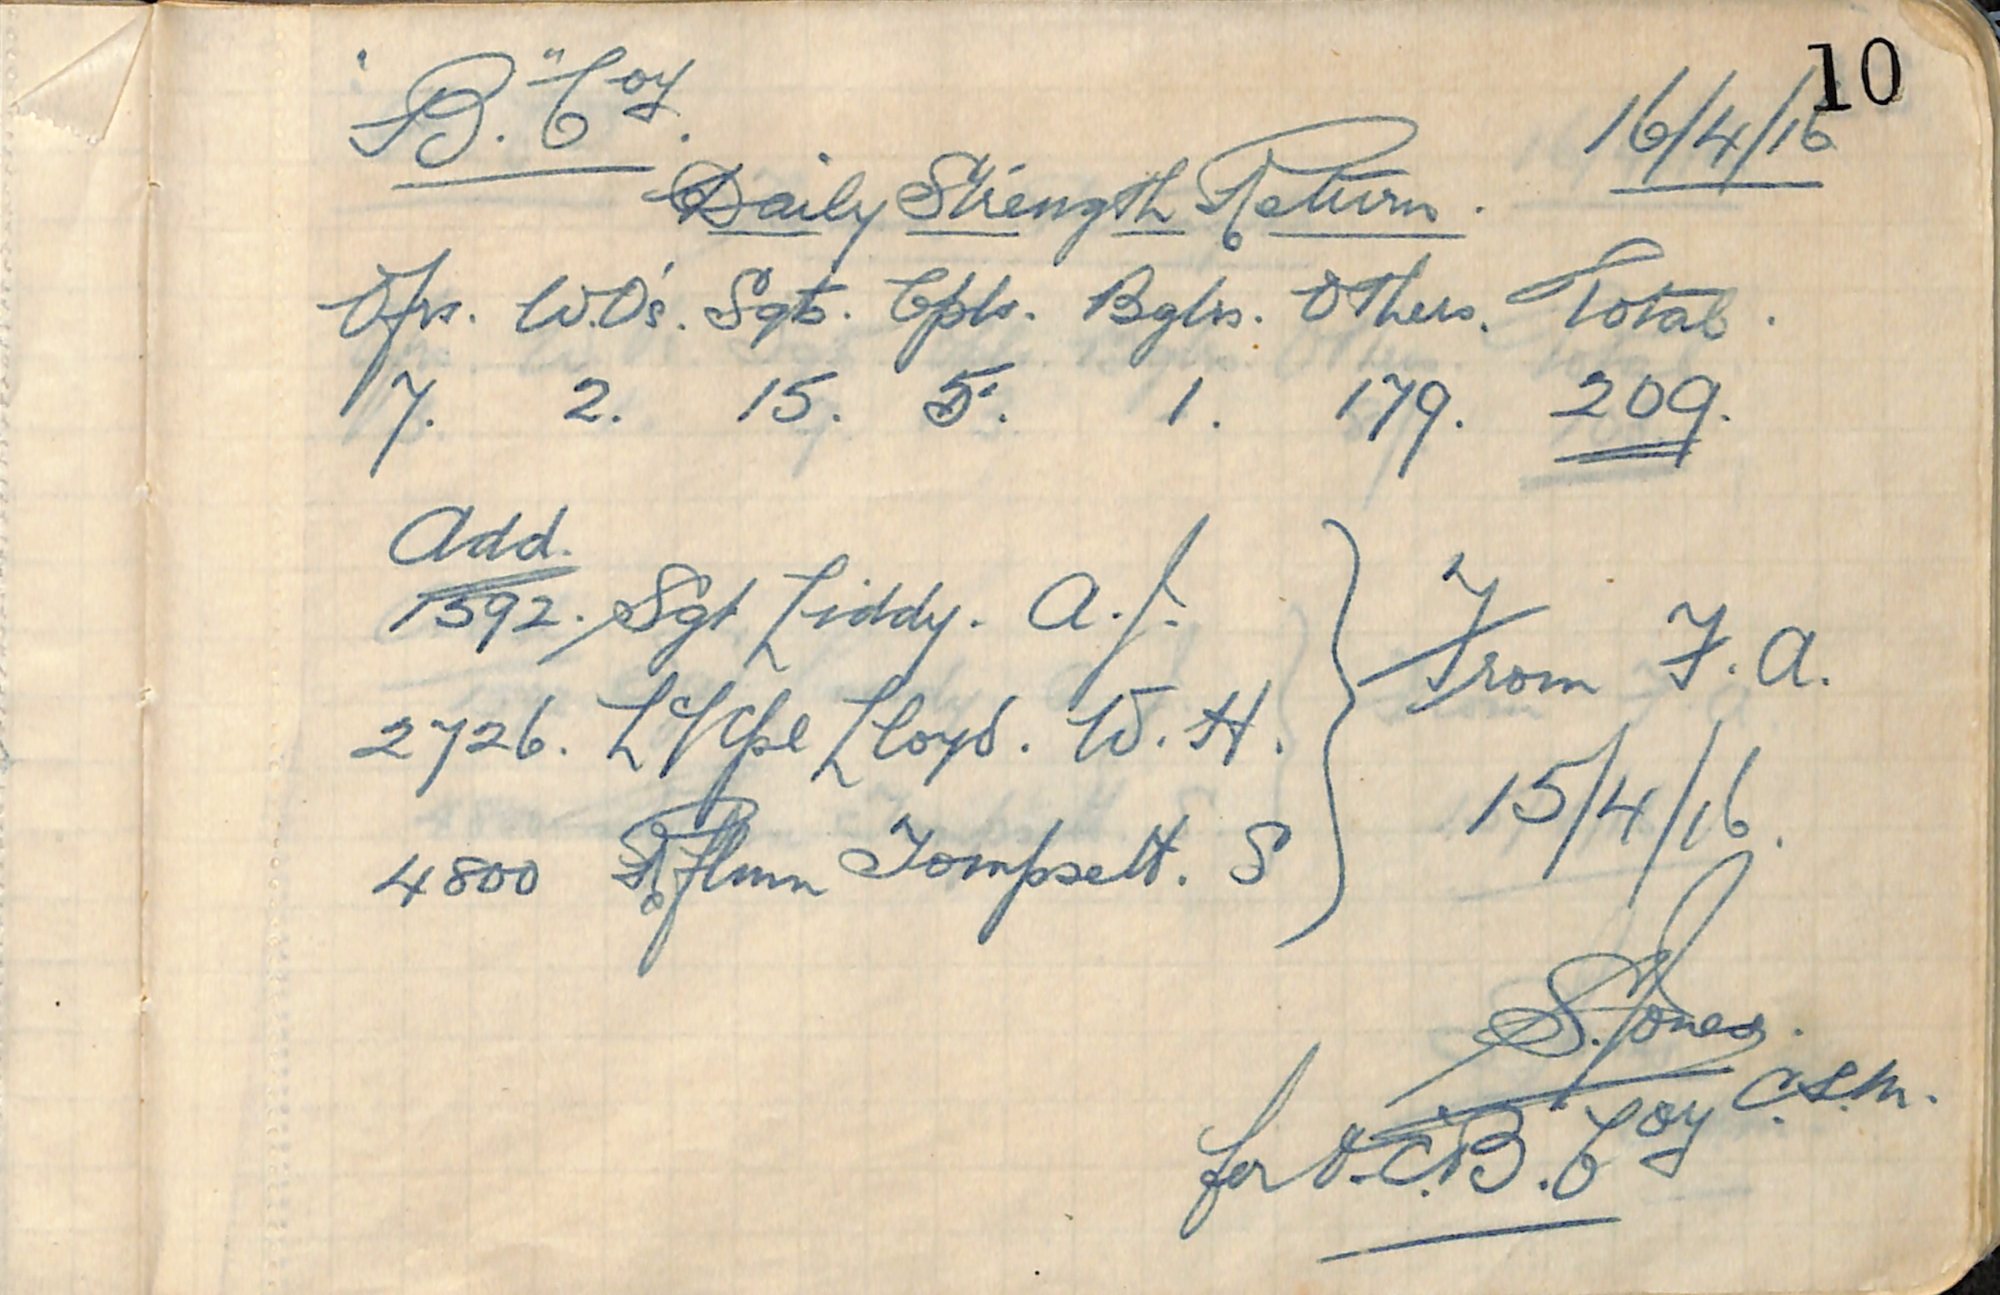 10
"B." Coy.
16/4/16
Daily Strength Return.
Ofrs. W.O's. Sgts. Cpls. Bglrs. Others. Total.
7. 2. 15. 5. 1. 179. 209.
Add.
1592. Sgt Liddy. A. J.
2726. L/Cpl Lloyd. W. H.
4800 Rflmn Tompsett. S
From F. A.
15/4/16.
S. Jones.
C.S.M.
for O.C. "B". Coy